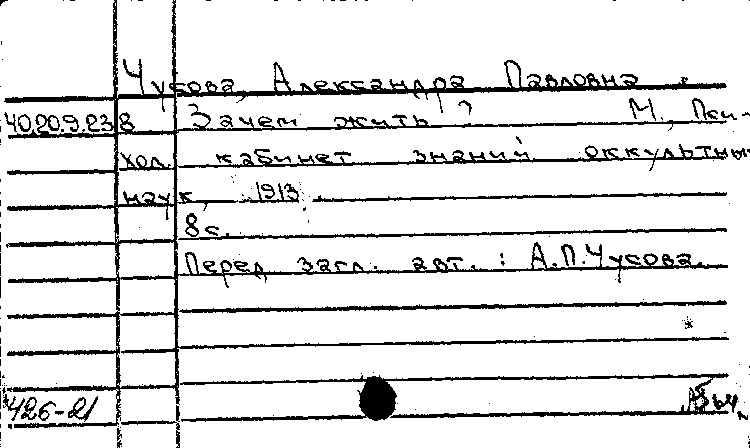 Чусова, Александра Павловна.
40.20.9.238 Зачем жить? М., Пси-
хол. кабинет знаний оккультны
наук, 1913.
8с.
Перед загл. авт.: А.П.Чусова.
426-21